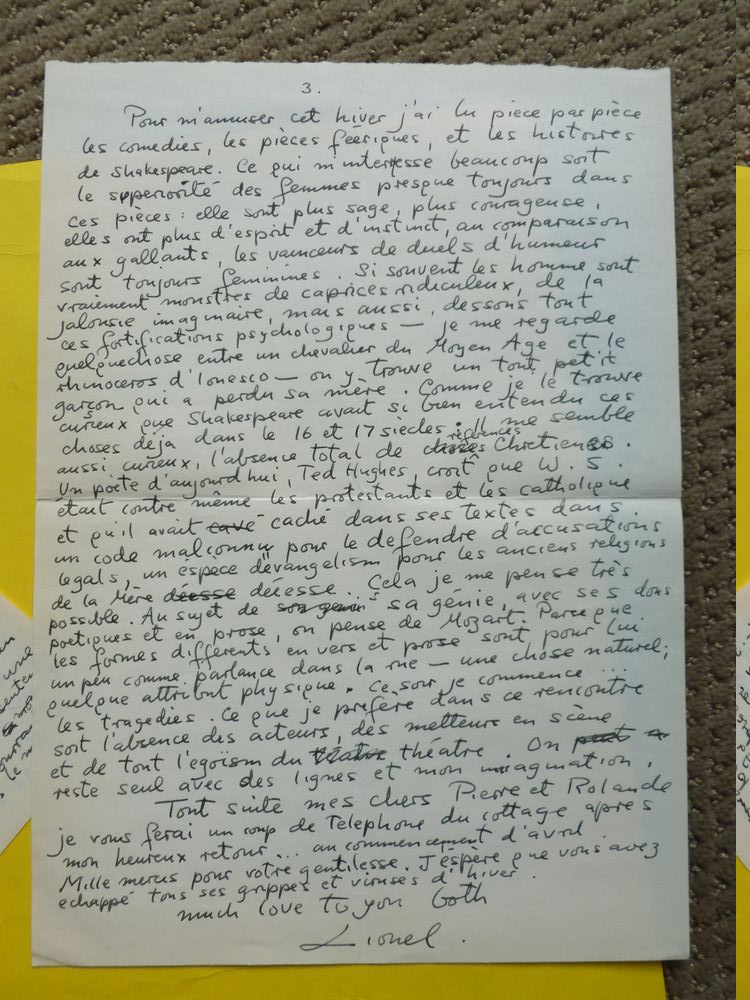 3.
Pour m'amuser cet hiver j'ai lu piece par pièce
les comedies, les pièces féériques, et les histoires
de Shakespeare. Ce qui m'interesse beaucoup soit
le superiorité des femmes presque toujours dans
ces pièces : elle sont plus sage, plus courageuse,
elles ont plus d'esprit et d'instinct, au comparaison
aux gallants, les vainceurs de duels d'humeur
sont toujours feminines. Si souvent les homme sont
vraiement monstres de caprices ridiculeux, de la
jalousie imaginaire, mais aussi, dessous tout
ces fortifications psychologiques — je me regarde
quelquechose entre un chevalier du Moyen Age et le
rhinoceros d'Ionesco — on y trouve un tout petit
garçon qui a perdu sa mère. Comme je le trouve
curieux que Shakespeare avait si bien entendu ces
choses déja dans le 16 et 17 siècles. Il me semble
aussi curieux, l'absence total de références Chretienes.
Un poète d'aujourd'hui, Ted Hughes, croit que W. S.
était contre même les protestants et les catholique
et qu'il avait cavé caché dans ses textes dans
un code malconnu pour le defendre d'accusations
legals, un espece d'evangelism pour les anciens religions
de la Mère déesse déesse. Cela je me pense très
possible. Au sujet de son genius sa génie, avec ses dons
poetiques et en prose, on pense de Mozart. Parce que
les formes differents en vers et prose sont pour lui
un peu comme parlance dans la rue — une chose naturel;
quelque attribut physique. Ce soir je commence ...
les tragedies. Ce que je préfère dans ce rencontre
soit l'absence des acteurs, des metteurs en scène
et de tout l'egoïsm du théatre théatre. On peut
reste seul avec des lignes et mon imagination.
Tout suite mes chers Pierre et Rolande
je vous ferai un coup de Telephone du cottage apres
mon heureux retour... au commencement d'avril.
Mille mercis pour votre gentilesse. J'éspere que vous avez
echappé tous ses grippes et viruses d'hiver.
much love to you both
Lionel.